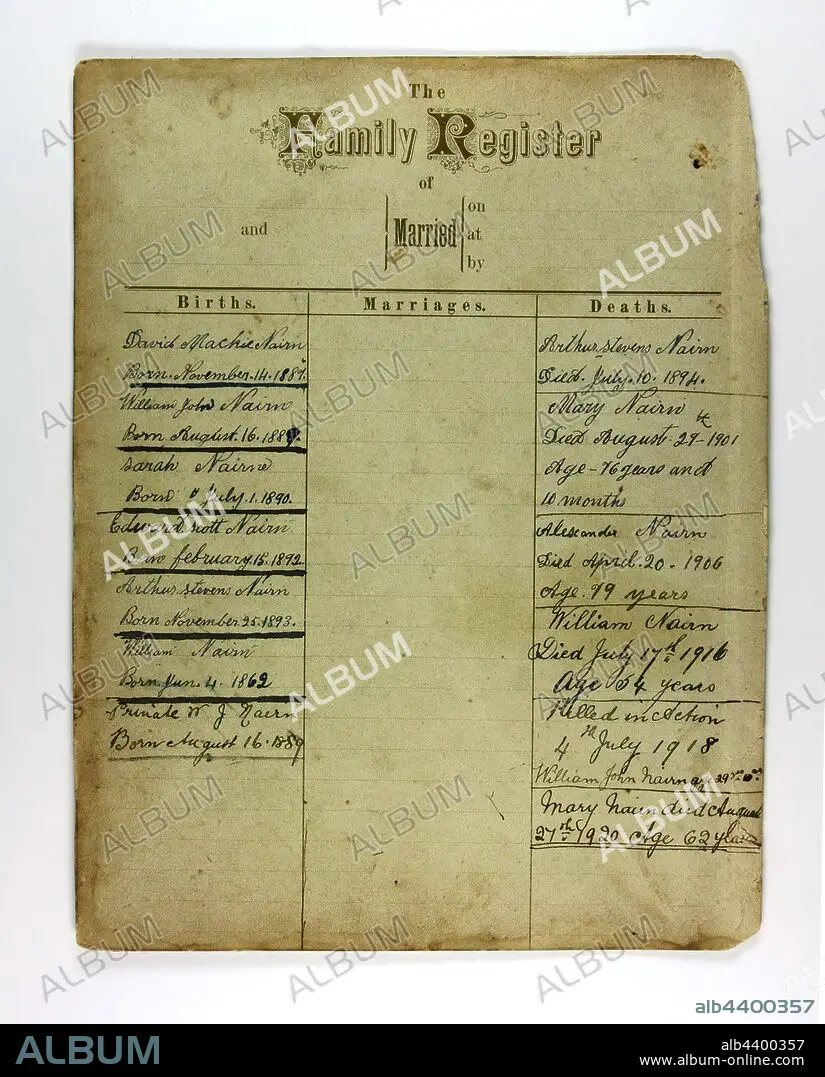 The
Family Register
of
and
Married
on
at
by
Births.
David Mackie Nairn
Born. November. 14. 1887.
William John Nairn
Born August. 16. 1889.
Sarah Nairne
Born July. 1. 1890.
Edward Scott Nairn
Born february. 15. 1892.
Arthur stevens Nairn
Born November 25. 1893.
William Nairn
Born Jun. 4. 1862
Private W J Nairn
Born August 16. 1889
Marriages.
Deaths.
Arthur stevens Nairn
Died. July. 10. 1894.
Mary Nairn
Died August 27th 1901
Age - 76 years and
10 months
Alexander Nairn
Died April. 20. 1906
Age. 79 years
William Nairn
Died July 17th 1916
Age 54 years
Killed in Action
4th July 1918
William John Nairn age 29
Mary Nairn died August
27th 1920 Age 62 years
ALBUM
alb4400357
ALBUM
alb4400357
www.album-online.com